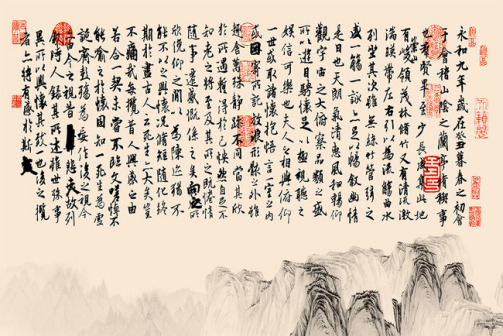 永和九年歲在癸丑暮春之初會
于會稽山陰之蘭亭脩禊事
也羣賢畢至少長咸集此地
有崇山峻領茂林脩竹又有清流激
湍暎帶左右引以為流觴曲水
列坐其次雖無絲竹管弦之
盛一觴一詠亦足以暢敘幽情
是日也天朗氣清惠風和暢仰
觀宇宙之大俯察品類之盛
所以遊目騁懷足以極視聽之
娛信可樂也夫人之相與俯仰
一世或取諸懷抱悟言一室之內
或因寄所託放浪形骸之外雖
趣舍萬殊靜躁不同當其欣
於所遇暫得於己快然自足不
知老之將至及其所之既惓情
隨事遷感慨係之矣向之所
欣俛仰之閒以為陳迹猶不
能不以之興懷況脩短隨化終
期於盡古人云死生亦大矣豈
不痛哉每攬昔人興感之由
若合一契未嘗不臨文嗟悼不
能喻之於懷固知一死生為虛
誕齊彭殤為妄作後之視今
亦由今之視昔悲夫故列
敘時人錄其所述雖世殊事
異所以興懷其致一也後之攬
者亦將有感於斯文